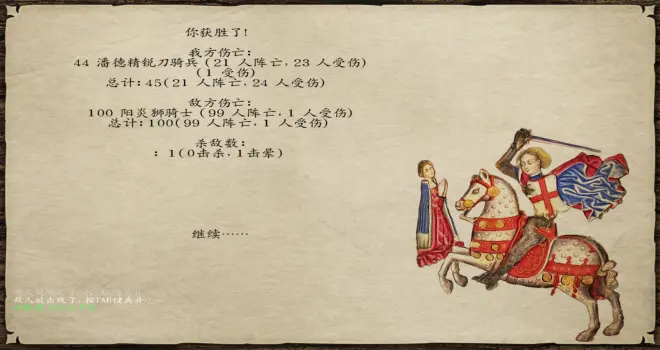 你获胜了!
我方伤亡:
44 潘德精锐刀骑兵 (21 人阵亡, 23 人受伤)
(1 受伤)
总计: 45(21 人阵亡, 24 人受伤)
敌方伤亡:
100 阳炎狮骑士 (99 人阵亡, 1 人受伤)
总计: 100(99 人阵亡, 1 人受伤)
杀敌数:
: 1(0击杀, 1击晕)
继续……
敌人被击败了, 按TAB键离开